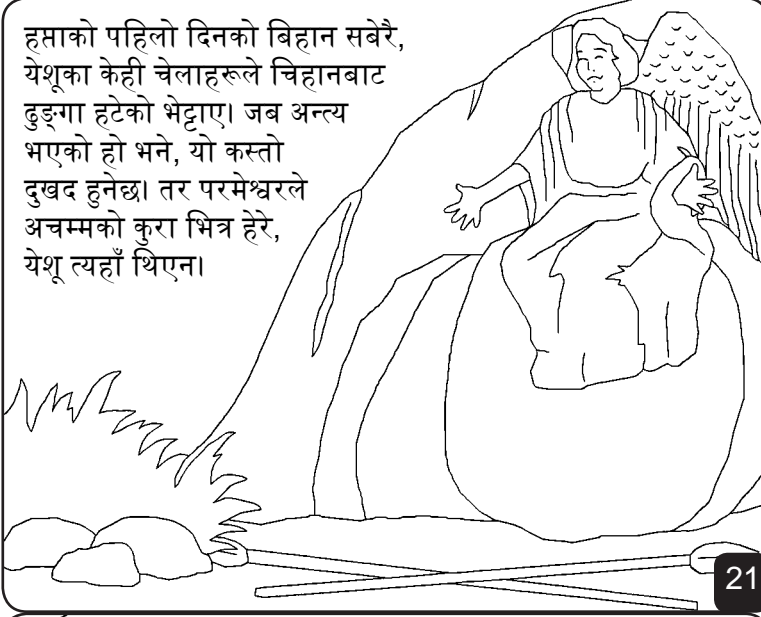 हप्ताको पहिलो दिनको बिहान सबेरै,
येशूका केही चेलाहरूले चिहानबाट
ढुङ्गा हटेको भेट्टाए। जब अन्त्य
भएको हो भने, यो कस्तो
दुखद हुनेछ। तर परमेश्वरले
अचम्मको कुरा भित्र हेरे,
येशू त्यहाँ थिएन।
21